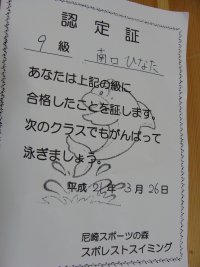 認定証
9級 南口ひなた
あなたは上記の級に
合格したことを証します
次のクラスでもがんばって
泳ぎましょう。
平成 年3月26日
尼崎スポーツの森
スポレストスイミング